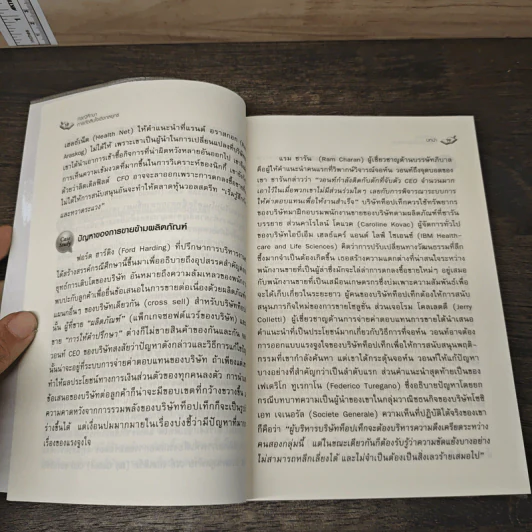 กรณีศึกษา
เฮลธ์เน็ต (Health Net) ให้คำแนะนำที่แรนด์ อราสกอก
Araskog) ไม่ได้ให้ เพราะเขาเป็นผู้นำในการเปลี่ยนแปลง
เขาได้นำเอาการเข้าซื้อกิจการที่น่าผิดหวังหลายอันออกไป
การเห็นความเข้มงวดที่มากขึ้นในการวิเคราะห์ของนิกกี้
ด้วยว่าลิตเติลฟิลด์ CFO อาจจะลาออกเพราะการตกลงซื้อขาย
ไม่ได้ให้การสนับสนุนอันจะทำให้ตลาดหุ้นวอลสตรีท "เริ่มรู้สึก
และหวาดระแวง"
ปัญหาของการขายข้ามผลิตภัณฑ์
ฟอร์ด ฮาร์ดิง (Ford Harding) ที่ปรึกษาการบริหารงาน
ได้สร้างสรรค์กรณีศึกษานี้ขึ้นมาเพื่ออธิบายถึงอุปสรรคสำคัญ
ยุทธ์การเติบโตของบริษัท อันหมายถึงความล้มเหลวของพนักงาน
พบปะกับลูกค้าเพื่อยื่นข้อเสนอในการขายต่อเนื่องด้วยผลิตภัณฑ์
แผนกอื่นๆ ของบริษัทเดียวกัน (cross sell) สำหรับบริษัทท็อปเท็ก
นั้น ผู้ที่ขาย "ผลิตภัณฑ์" (แพ็กเกจซอฟต์แวร์ของบริษัท) และ
ขาย "การให้คำปรึกษา" ต่างก็ไม่ขายสินค้าของกันและกัน
วอนท์ CEO ของบริษัทสงสัยว่าปัญหาดังกล่าวและวิธีการแก้ไข
นั้นน่าจะอยู่ที่ระบบการจ่ายค่าตอบแทนของบริษัท ถ้าเพียงแต่
ทำให้ผลประโยชน์ทางการเงินส่วนตัวของทุกคนลงตัว การนำ
ข้อเสนอของบริษัทต่อลูกค้าก็น่าจะมีขอบเขตที่กว้างขวางขึ้น
ความคาดหวังจากการรวมพลังของบริษัทท็อปเท็กก็จะเป็นรูป
ร่างขึ้นได้ แต่เงื่อนปมมากมายในเรื่องบ่งชี้ว่ามีปัญหาที่มาก
เรื่องของแรงจูงใจ
บทนำ
แรม ชาราน (Ram Charan) ผู้เชี่ยวชาญด้านบรรษัทภิบาล
คือผู้ให้คำแนะนำคนแรกที่วิพากษ์วิจารณ์จอห์น วอนท์ถึงจุดบอดของ
เขา ชารานกล่าวว่า "วอนท์กำลังติดกับดักที่จับตัว CEO จำนวนมาก
เอาไว้ในเมื่อพวกเขาไม่มีส่วนร่วมใดๆ เลยกับการพิจารณาระบบการ
ให้ค่าตอบแทนเพื่อให้งานสำเร็จ" บริษัทท็อปเท็กควรใช้ทรัพยากร
ของบริษัทมาฝึกอบรมพนักงานขายของบริษัทตามผลิตภัณฑ์ที่ชาราน
บรรยาย ส่วนคาโรไลน์ โคแวค (Caroline Kovac) ผู้จัดการทั่วไป
ของบริษัทไอบีเอ็ม เฮลธ์แคร์ แอนด์ ไลฟ์ ไซเอนซ์ (IBM Health-
care and Life Sciences) คิดว่าการปรับเปลี่ยนทางวัฒนธรรมที่ลึก
ซึ้งมากจำเป็นต้องเกิดขึ้น เธอสร้างความแตกต่างที่น่าสนใจระหว่าง
พนักงานขายที่เป็นผู้ล่าซึ่งมักจะไล่ล่าการตกลงซื้อขายใหม่ๆ อยู่เสมอ
กับพนักงานขายที่เป็นเสมือนเกษตรกรซึ่งบ่มเพาะความสัมพันธ์เพื่อ
จะได้เก็บเกี่ยวในระยะยาว ผู้คนของบริษัทท็อปเท็กต้องให้การสนับ
สนุนภารกิจใหม่ของการขายโซลูชัน ส่วนเจอโรม โคลเลตติ (Jerry
Colletti) ผู้เชี่ยวชาญด้านการจ่ายค่าตอบแทนการขายได้นำเสนอ
คำแนะนำที่เป็นประโยชน์มากเกี่ยวกับวิธีการที่จอห์น วอนท์อาจต้อง
การออกแบบแรงจูงใจของบริษัทท็อปเท็กเพื่อให้การสนับสนุนพฤติ-
กรรมที่เขากำลังค้นหา แต่เขาได้กระตุ้นจอห์น วอนท์ให้แก้ปัญหา
บางอย่างที่สำคัญกว่าเป็นลำดับแรก ส่วนคำแนะนำสุดท้ายเป็นของ
เฟเดริโก ทูเรกาโน (Federico Turegano) ซึ่งอธิบายปัญหาโดยยก
กรณีบทบาทความเป็นผู้นำของเขาในกลุ่มวาณิชธนกิจของบริษัทโซซิ
เอท เจเนอรัล (Societe Generale) ความเห็นที่ปฏิบัติได้จริงของเขา
ก็คือว่า "ผู้บริหารบริษัทท็อปเท็กจะต้องบริหารความตึงเครียดระหว่าง
คนสองกลุ่มนี้ แต่ในขณะเดียวกันก็ต้องรับรู้ว่าความขัดแย้งบางอย่าง
ไม่สามารถหลีกเลี่ยงได้ และไม่จำเป็นต้องเป็นสิ่งเลวร้ายเสมอไป"